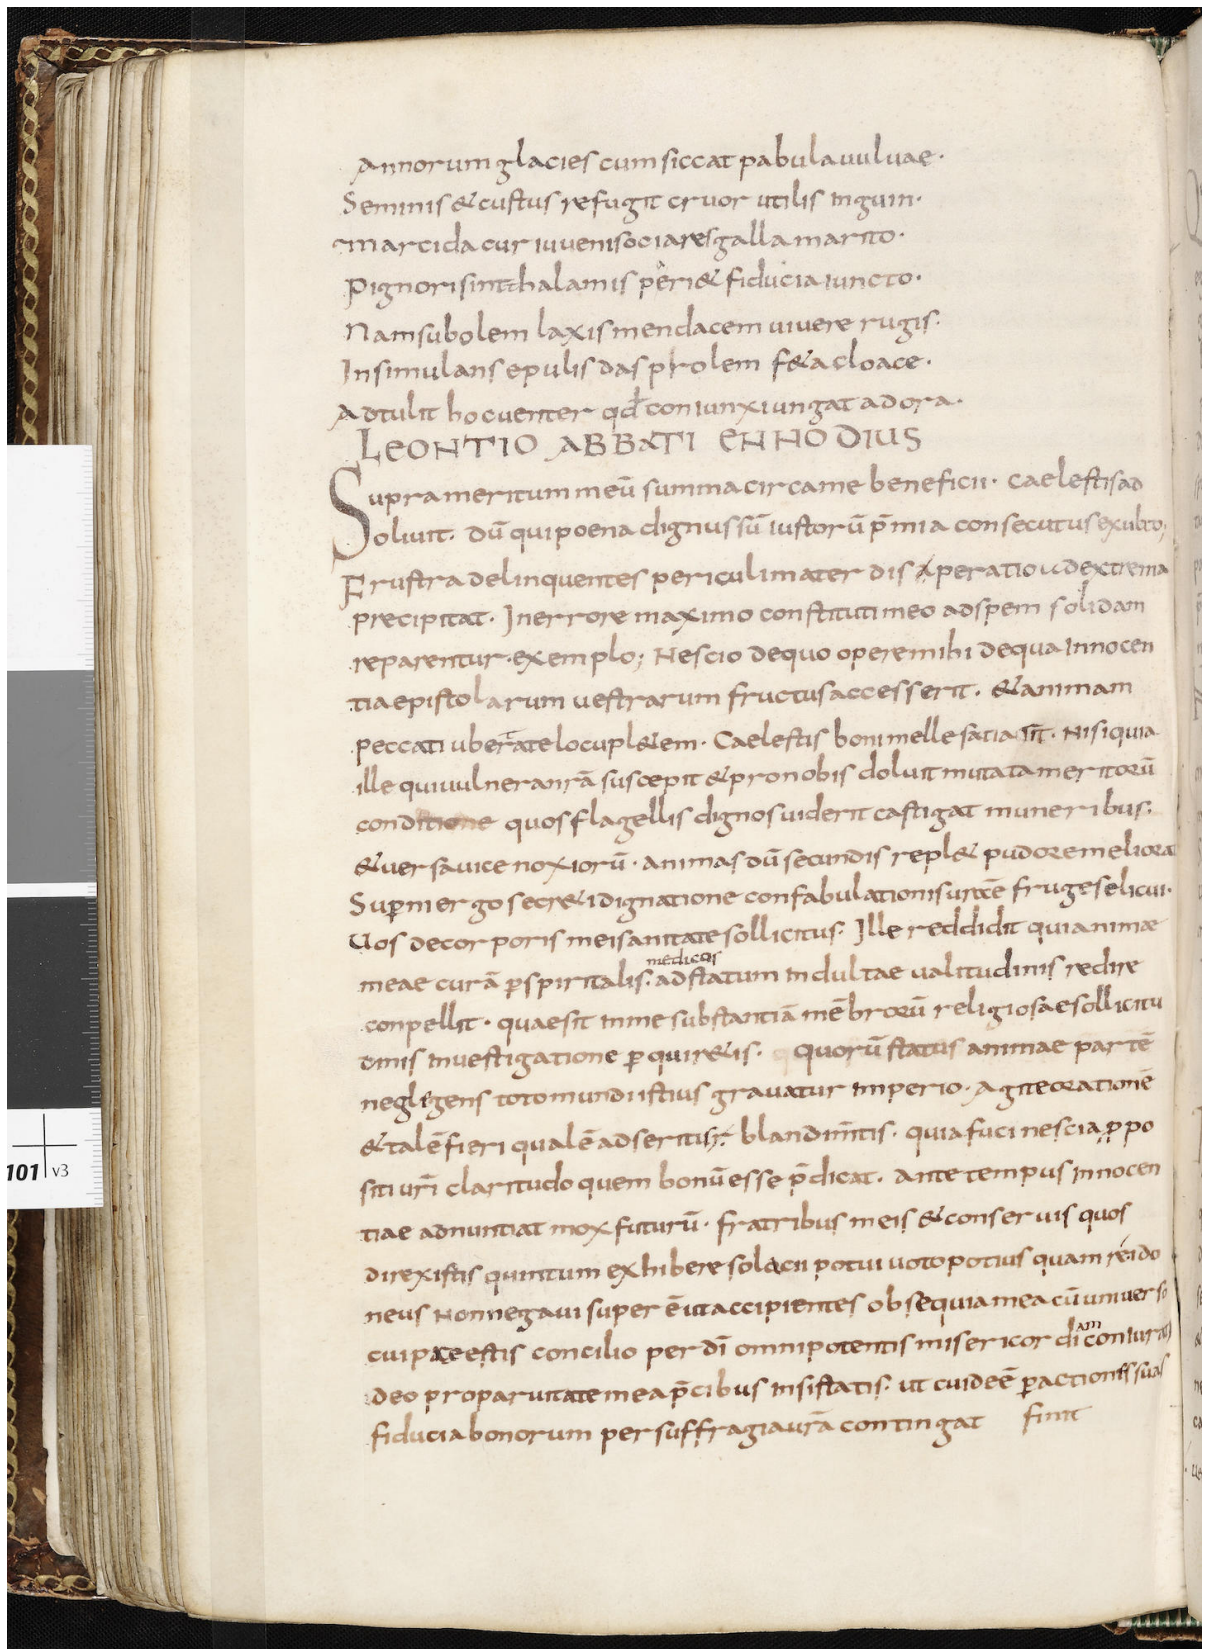 Annorum glacies cum siccat pabula uuluae·
Seminis & custus refugit cruor utilis inguin·
marcida cur iuueni sociares galla marito·
Pignori sint thalamis peri& fiducia iuncto·
Nam subolem laxis mendacem uiuere rugis·
Insimulans epulis das phrolem f&a cloace·
Adtulit hoc uenter qđ coniunxi ungat adora·
LEONTIO ABBATI ENNODIUS
Supra meritum meū summa circa me beneficii· caelestis ad
oliuit· dū qui poena dignus sū iustorū p̄mia consecutus exulto;
Frustra delinquentes periculi mater disperatio ud extrema
precipitat· In errore maximo constituti meo ad spem solidam
reparentur·exemplo; Nescio de quo opere mihi de qua innocen
tia epistolarum uestrarum fructus accesserit· & animam
peccati ubertate locupl&em· Caelestis boni melle satiasit· Nisi quia
ille qui uulnera nrā suscepit & pro nobis doluit mutata meritorū
conditione quos flagellis dignos uiderit castigat muneribus;
& uersa uice noxiorū· animas dū secundis repl& pudore meliorat
Sup̄mergo secr&i dignatione confabulationis uncē fruges elicui·
Uos de corporis mei sanitate solliciтus· Ille reddidit qui animæ
meae curā p̱ spiritalis· medicos ad statum indultae ualitudinis redire
conpellit· quaesit in me substantiā mēbrorū religiosae sollicitu
dinis inuestigatione p̱quir&is· quorū status animae partē
neglegens toto mundi istius grauatur imperio· Agite orationē
& talē fieri qualē adseritis blandim̄tis· quia fuci nescia p̱po
siti urī claritudo quem bonū esse p̄dicat· Ante tempus innocen
tiae adnuntiat mox futurū· fratribus meis & conseruis quos
direxistis quintum exhibere solacii potui uoto potius quam re ido
neus Non negaui super ē ut accipientes obsequia mea cū uniuerso
cui p̱eestis concilio per dī omnipotentis misericordiam coniurati
deo pro paruitate mea p̄cibus insistatis· ut cui deē p̱ actiones suas
fiducia bonorum per suffragia urā contingat finit
101 v3